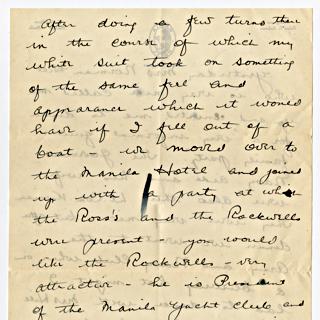 After doing a few turns there
in the course of which my
white suit took on something
of the same feel and
appearance which it would
have if I fell out of a
boat - we moved over to
the Manila Hotel and joined
up with a party at which
the Ross's and the Rockwells
were present - you would
like the Rockwells - very
attractive - he is President
of the Manila Yacht Club and